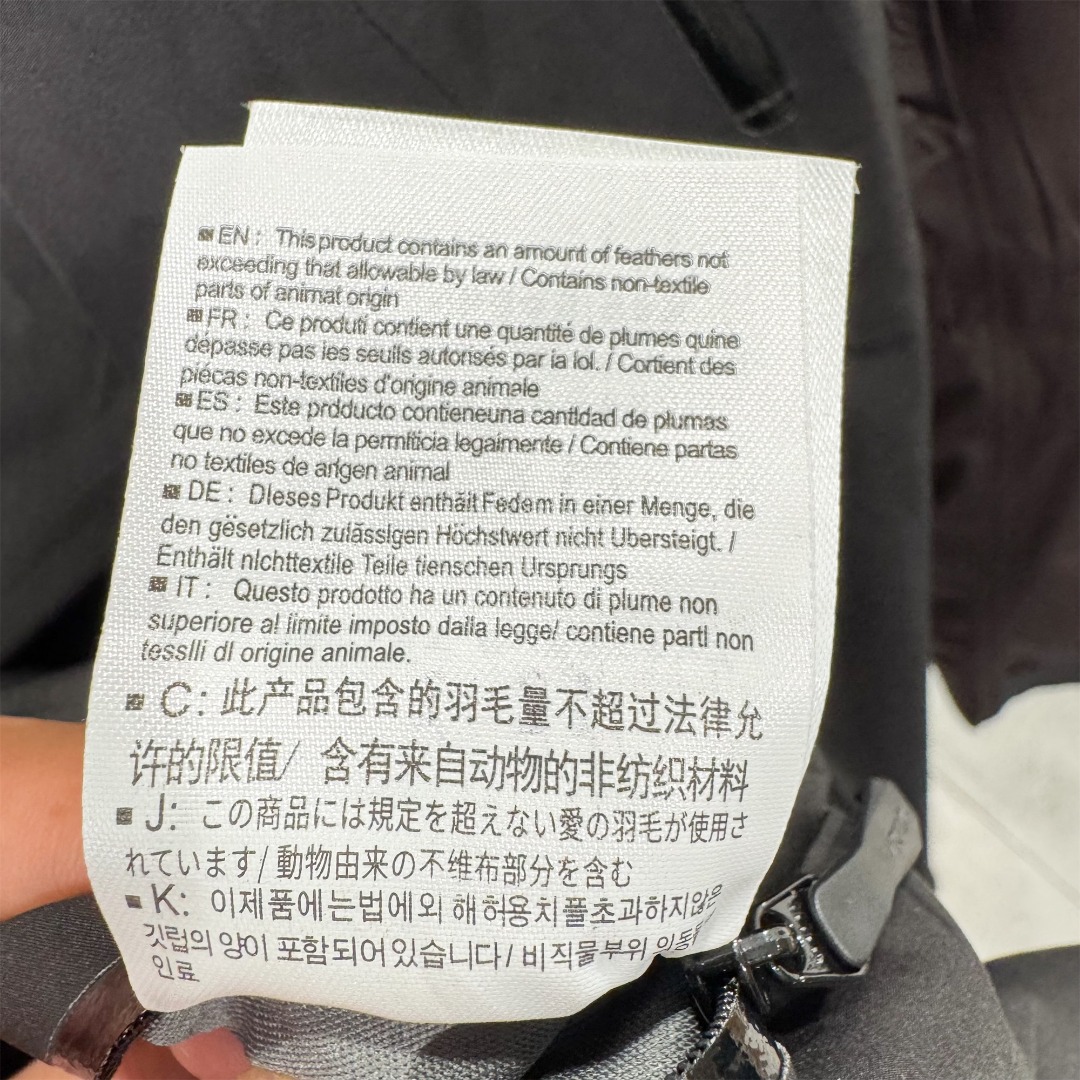 EN : This product contains an amount of feathers not
exceeding that allowable by law / Contains non-textile
parts of animat origin
FR : Ce produti contient une quantité de plumes quine
dépasse pas ies seuils autorisés par ia lol. / Cortient des
piécas non-textiles d'origine animale
ES : Este prdducto contieneuna cantldad de plumas
que no excede la permiticia legaimente / Contiene partas
no textiles de arlgen animal
DE : Dleses Produkt enthält Fedem in einer Menge, die
den gësetzlich zulässlgen Höchstwert nicht Ubersteigt. /
Enthält nlchttextile Teile tienschen Ursprungs
IT : Questo prodotto ha un contenuto di plume non
superiore al limite imposto dalla legge/ contiene partl non
tesslli dl origine animale.
C: 此产品包含的羽毛量不超过法律允
许的限值/ 含有来自动物的非纺织材料
J: この商品には規定を超えない愛の羽毛が使用さ
れています/ 動物由来の不维布部分を含む
K: 이제품에는법에외 해허용치풀초과하지않은
깃럽의 양이 포함되어있습니다/ 비직물부위
인료